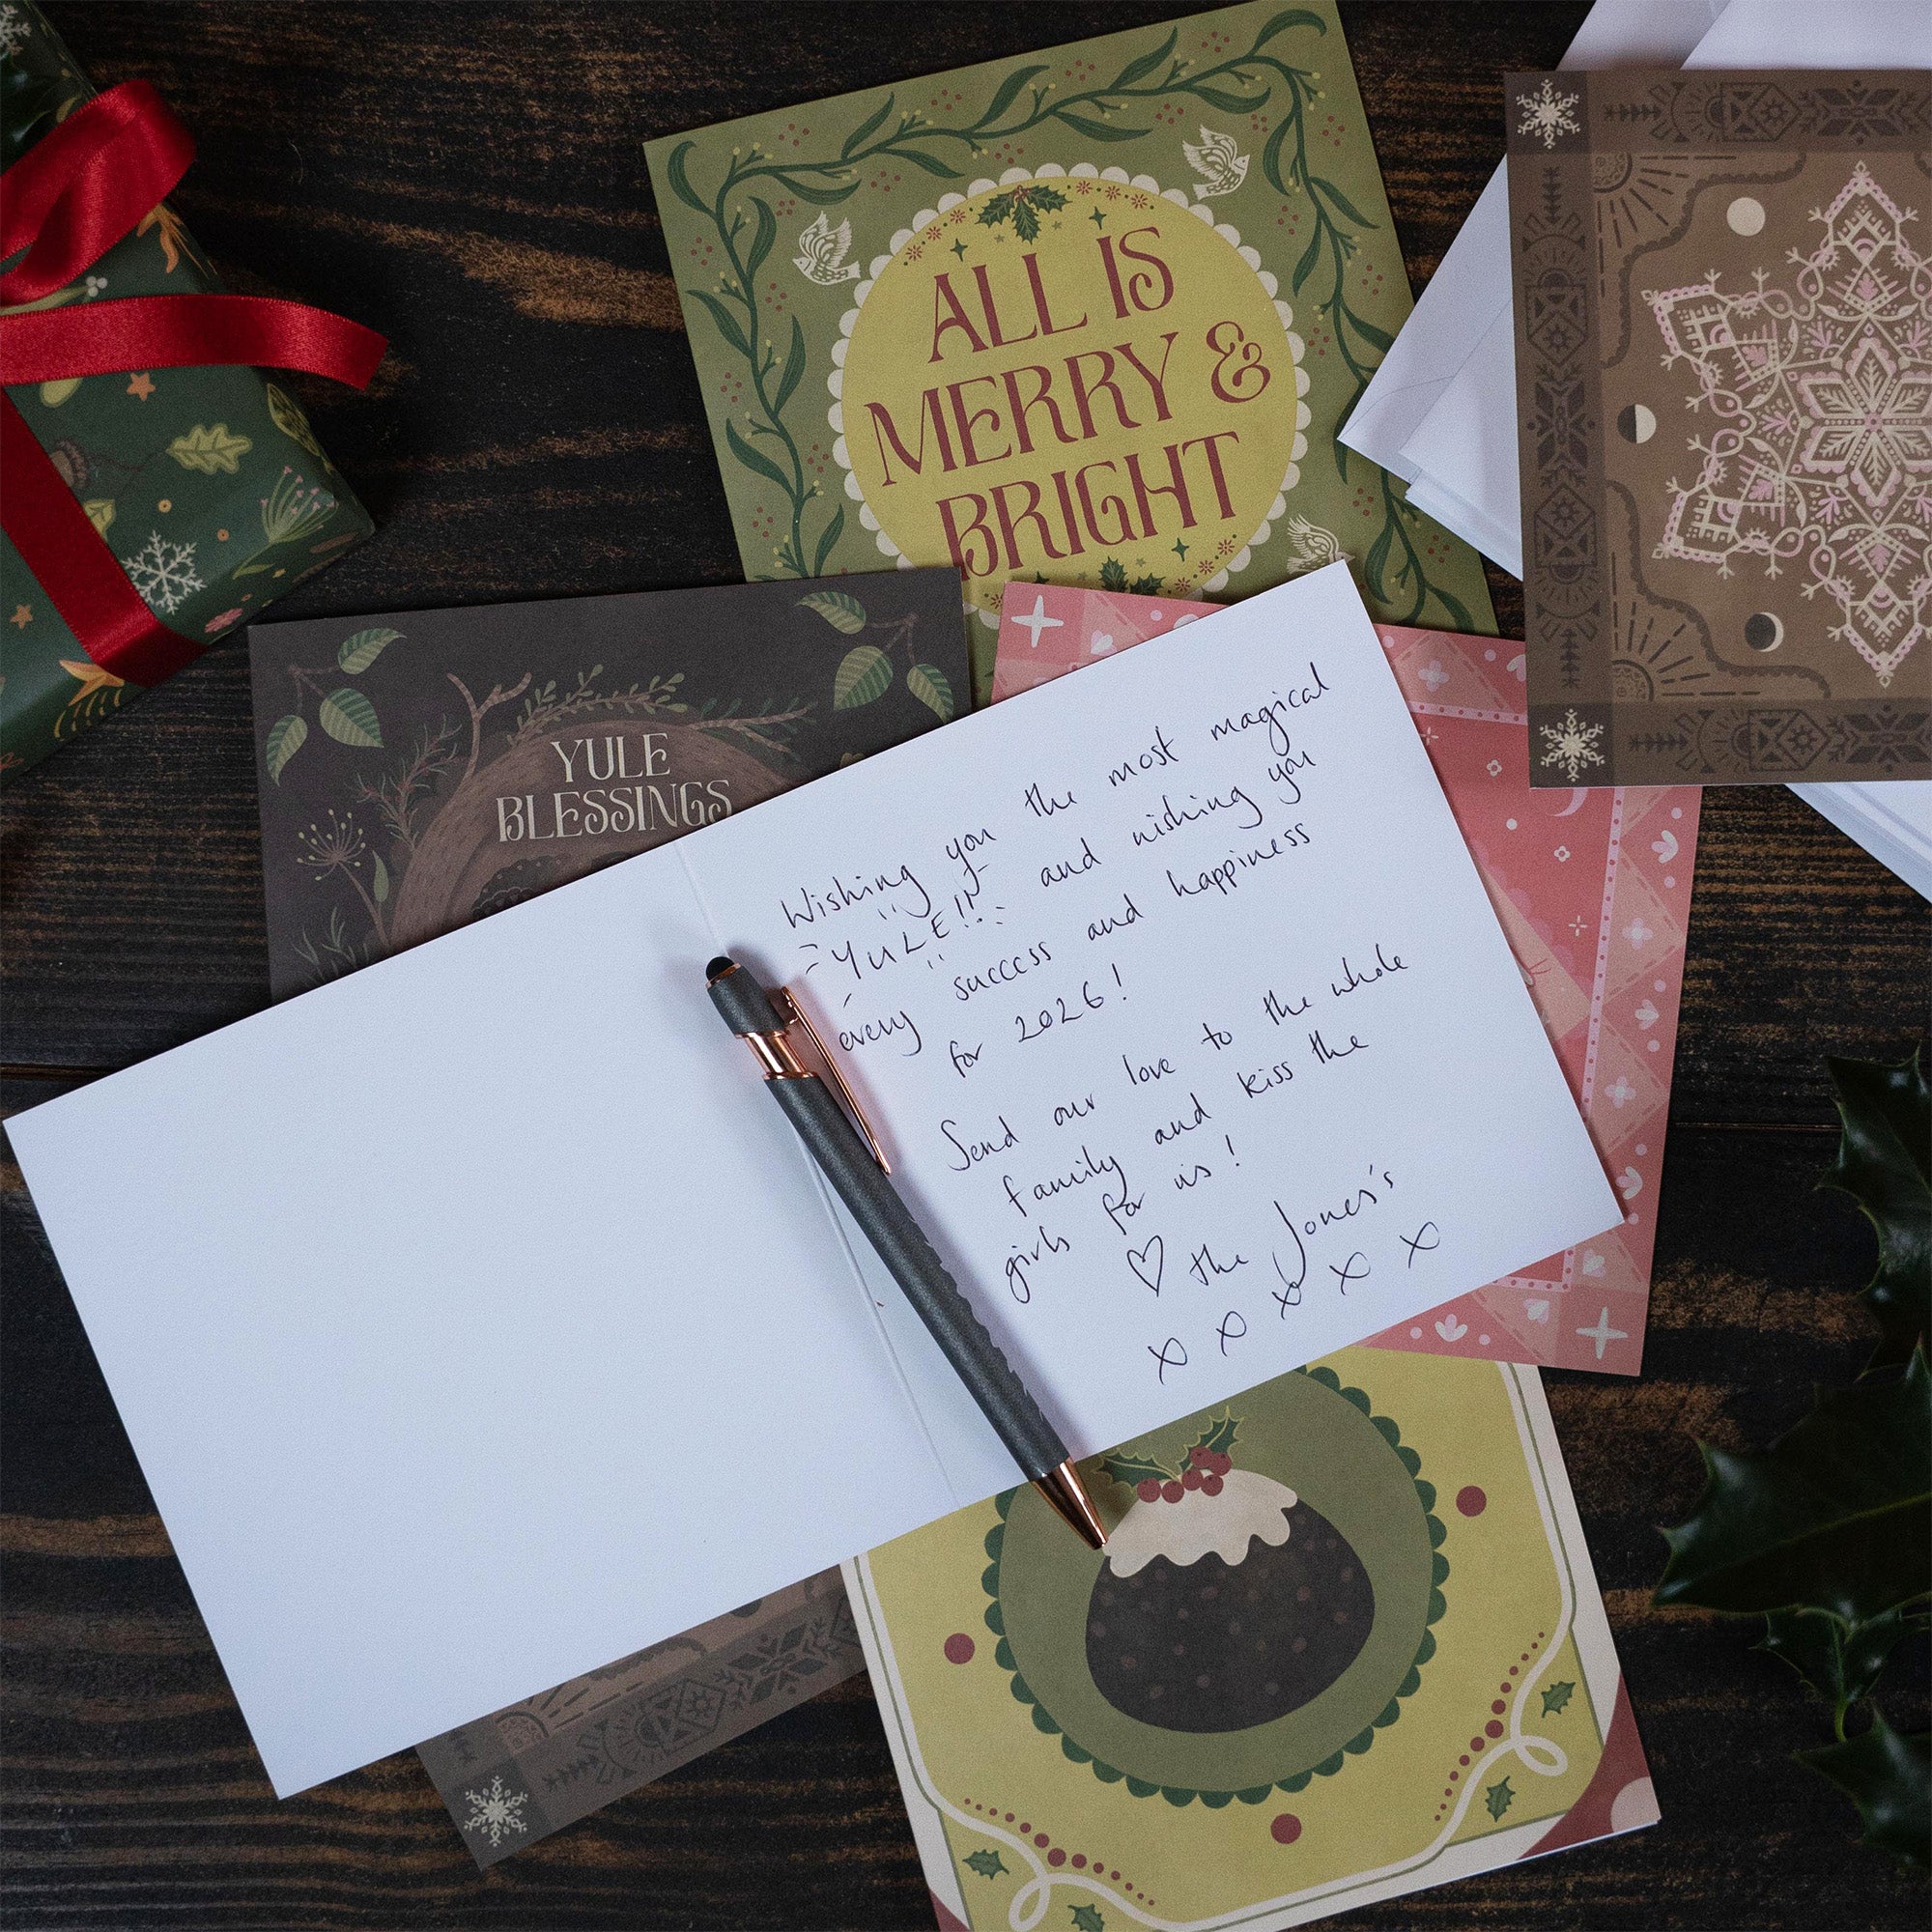 ALL IS
MERRY &
BRIGHT
YULE
BLESSINGS
Wishing you the most magical
YULE!! and wishing you
every success and happiness
for 2026!
Send our love to the whole
family and kiss the
girls for us!
♡ the Jones's
x x x x x